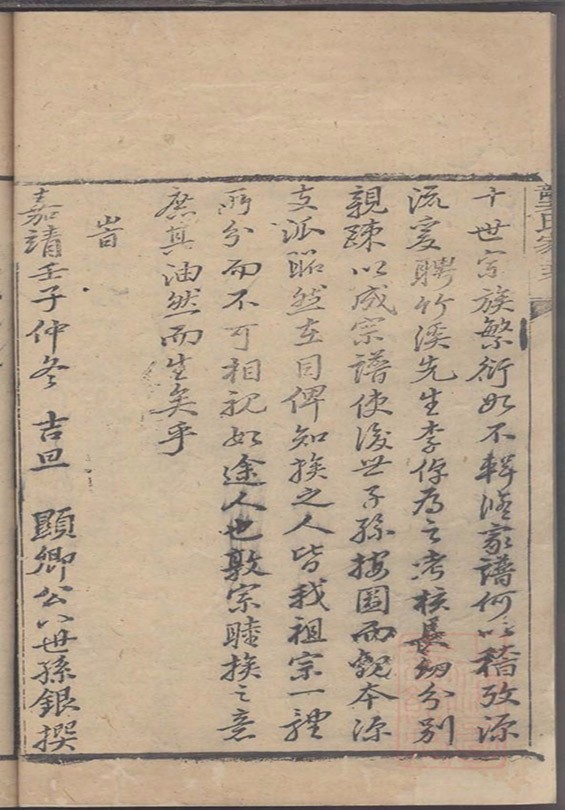 十世宗族繁衍如不輯修家譜何以稽攷源
流爰聘竹溪先生李倬為之考核長幼分別
親疎以成宗譜使後世子孫按圖而覩本源
支派昭然在目俾知族之人皆我祖宗一體
所分而不可相視如途人也敦宗睦族之意
庶其油然而生矣乎
旹
嘉靖壬子仲冬 吉旦 顯卿公八世孫銀撰